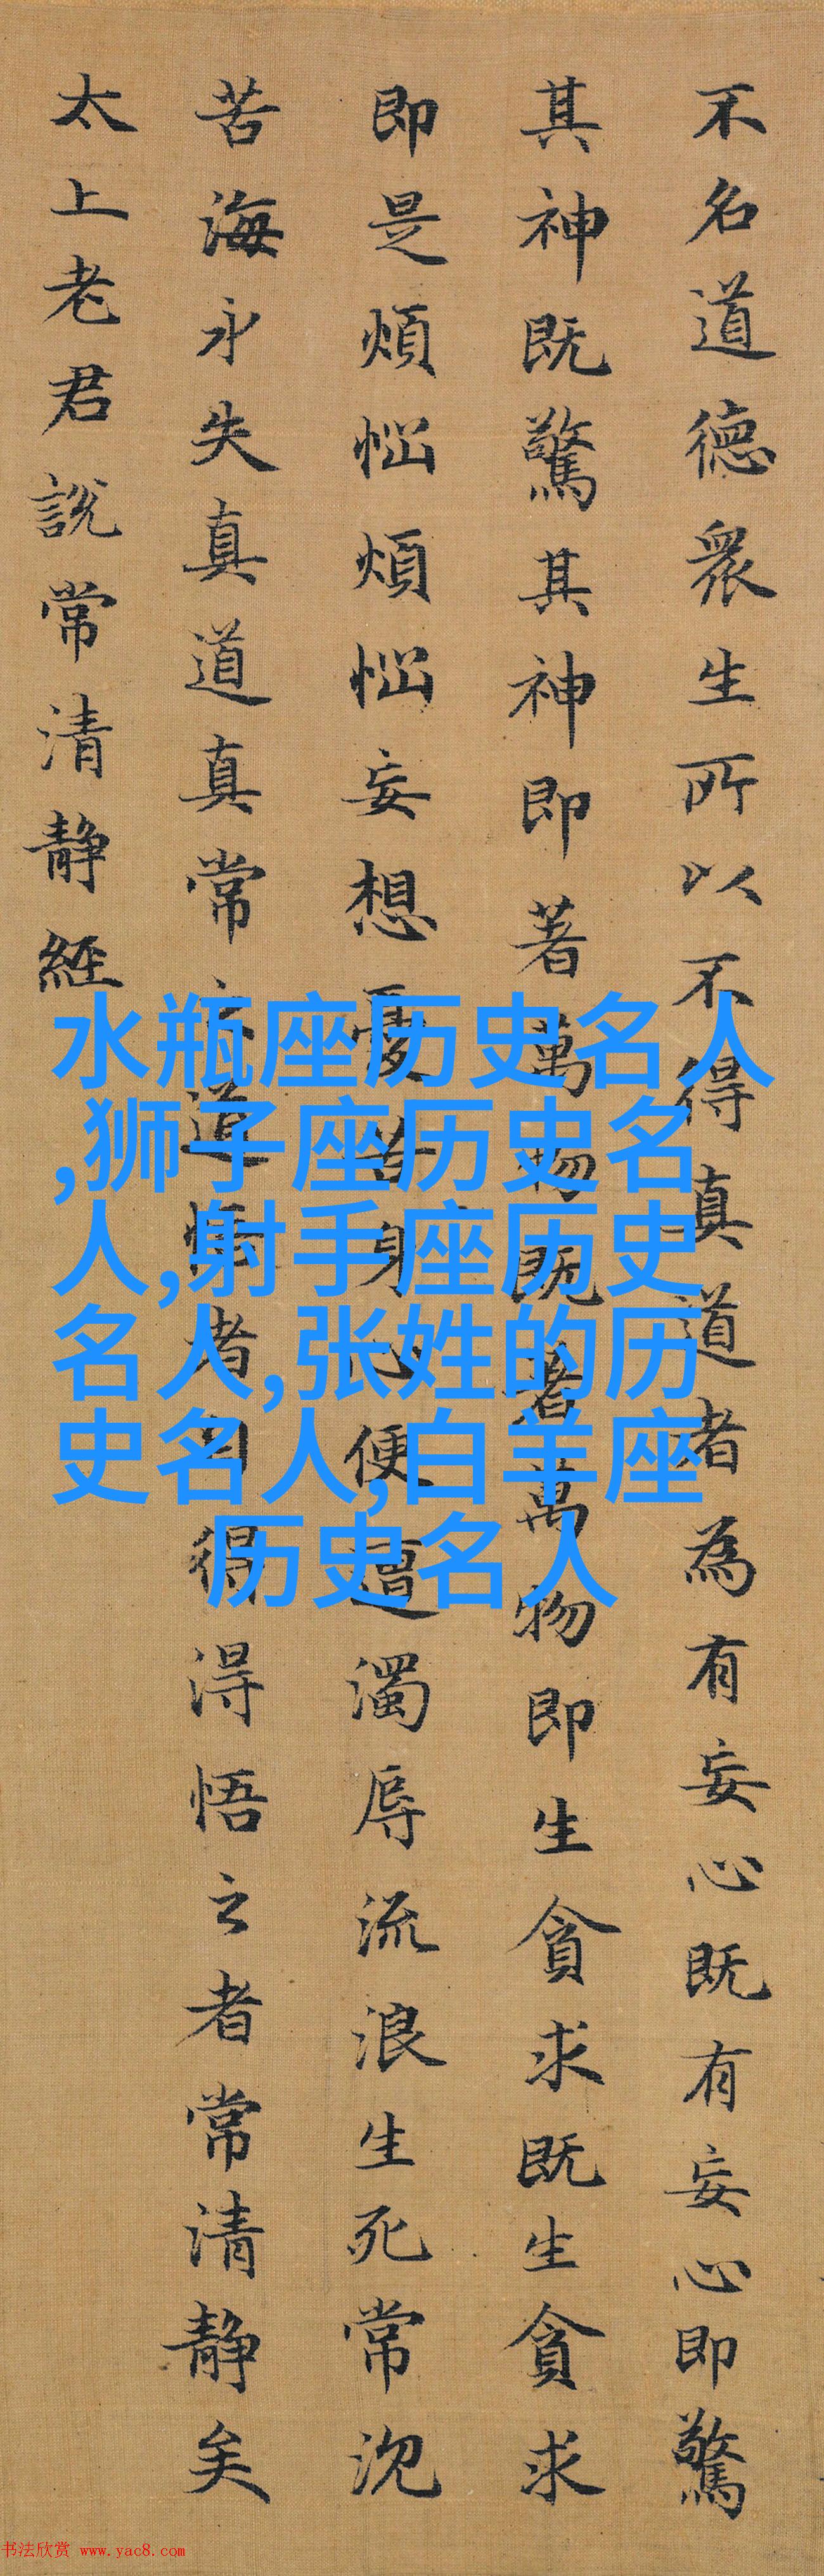 不名道德眾生所以不得真道者為有妄心既有妄心即驚
其神既驚其神即著萬物既著萬物即生貪求既生貪求
即是煩惱煩惱妄想憂苦身心便遭濁辱流浪生死常沉
苦海永失真道真常之道悟者自得得悟之者常清靜矣
太上老君說常清靜經
水瓶座历史名人
,狮子座历史名
人,射手座历史
名人,张姓的历
史名人,白羊座
历史名人
书法欣赏 www.yac8.com